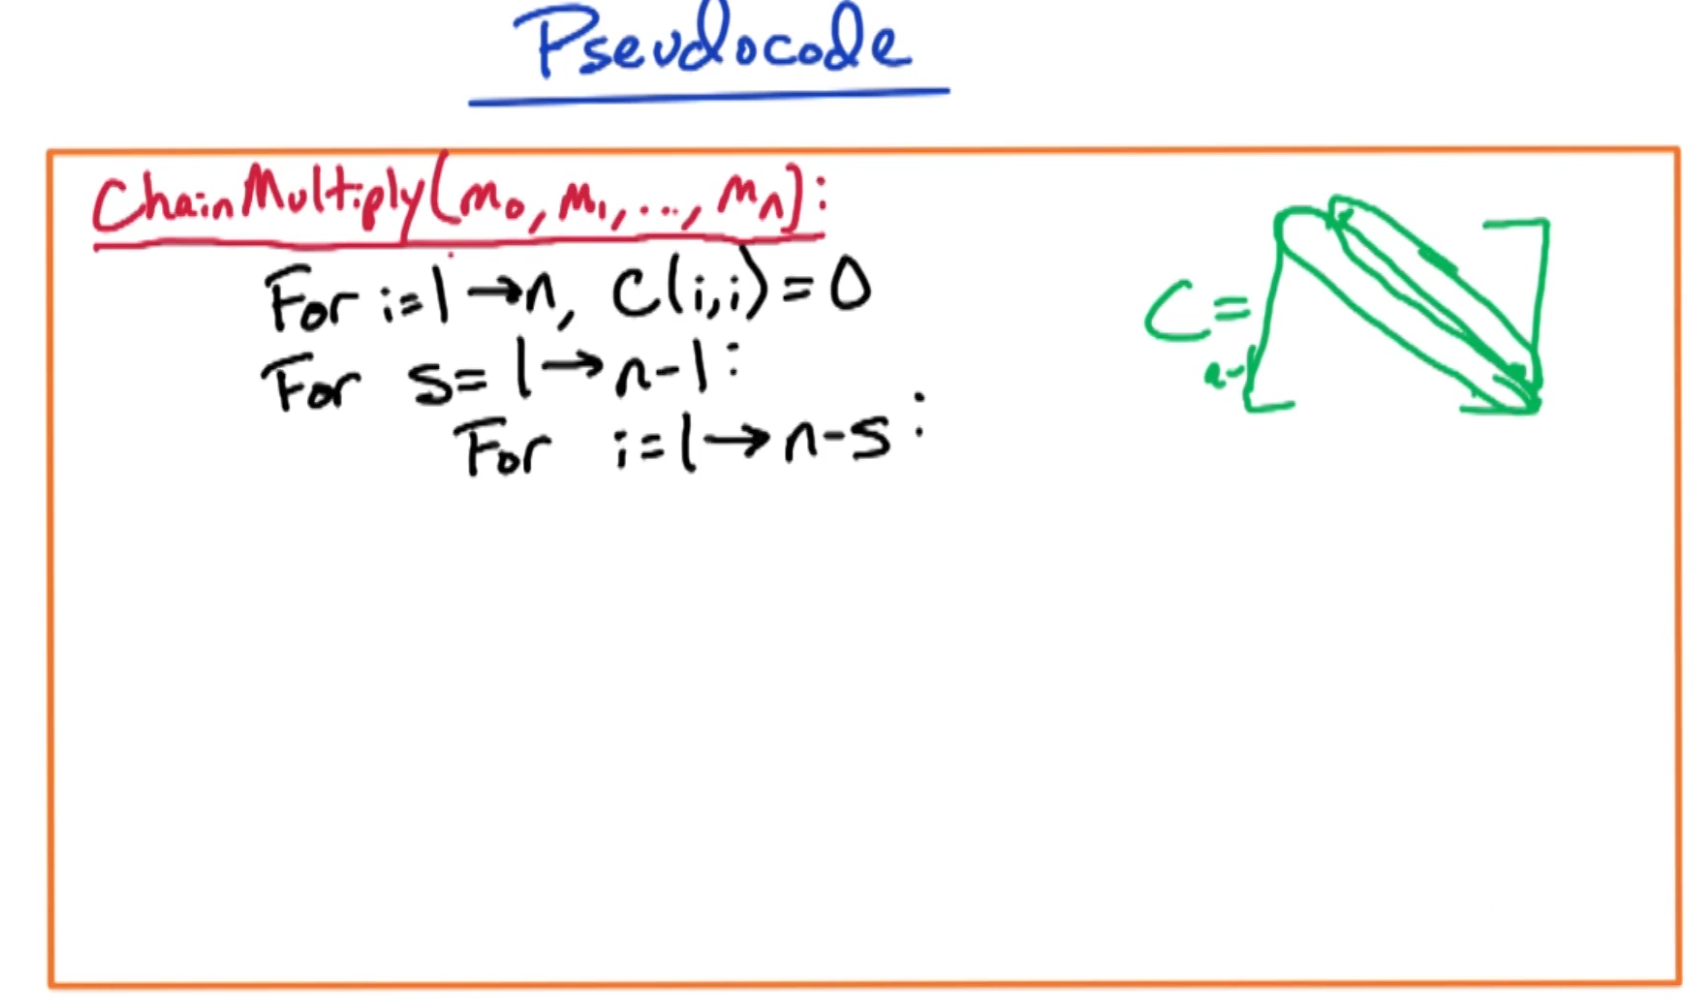 Pseudocode
ChainMultiply(m₀, m₁, ..., mₙ):
For i=1→n, C(i,i)=0
For s=1→n-1:
For i=1→n-s:
C=